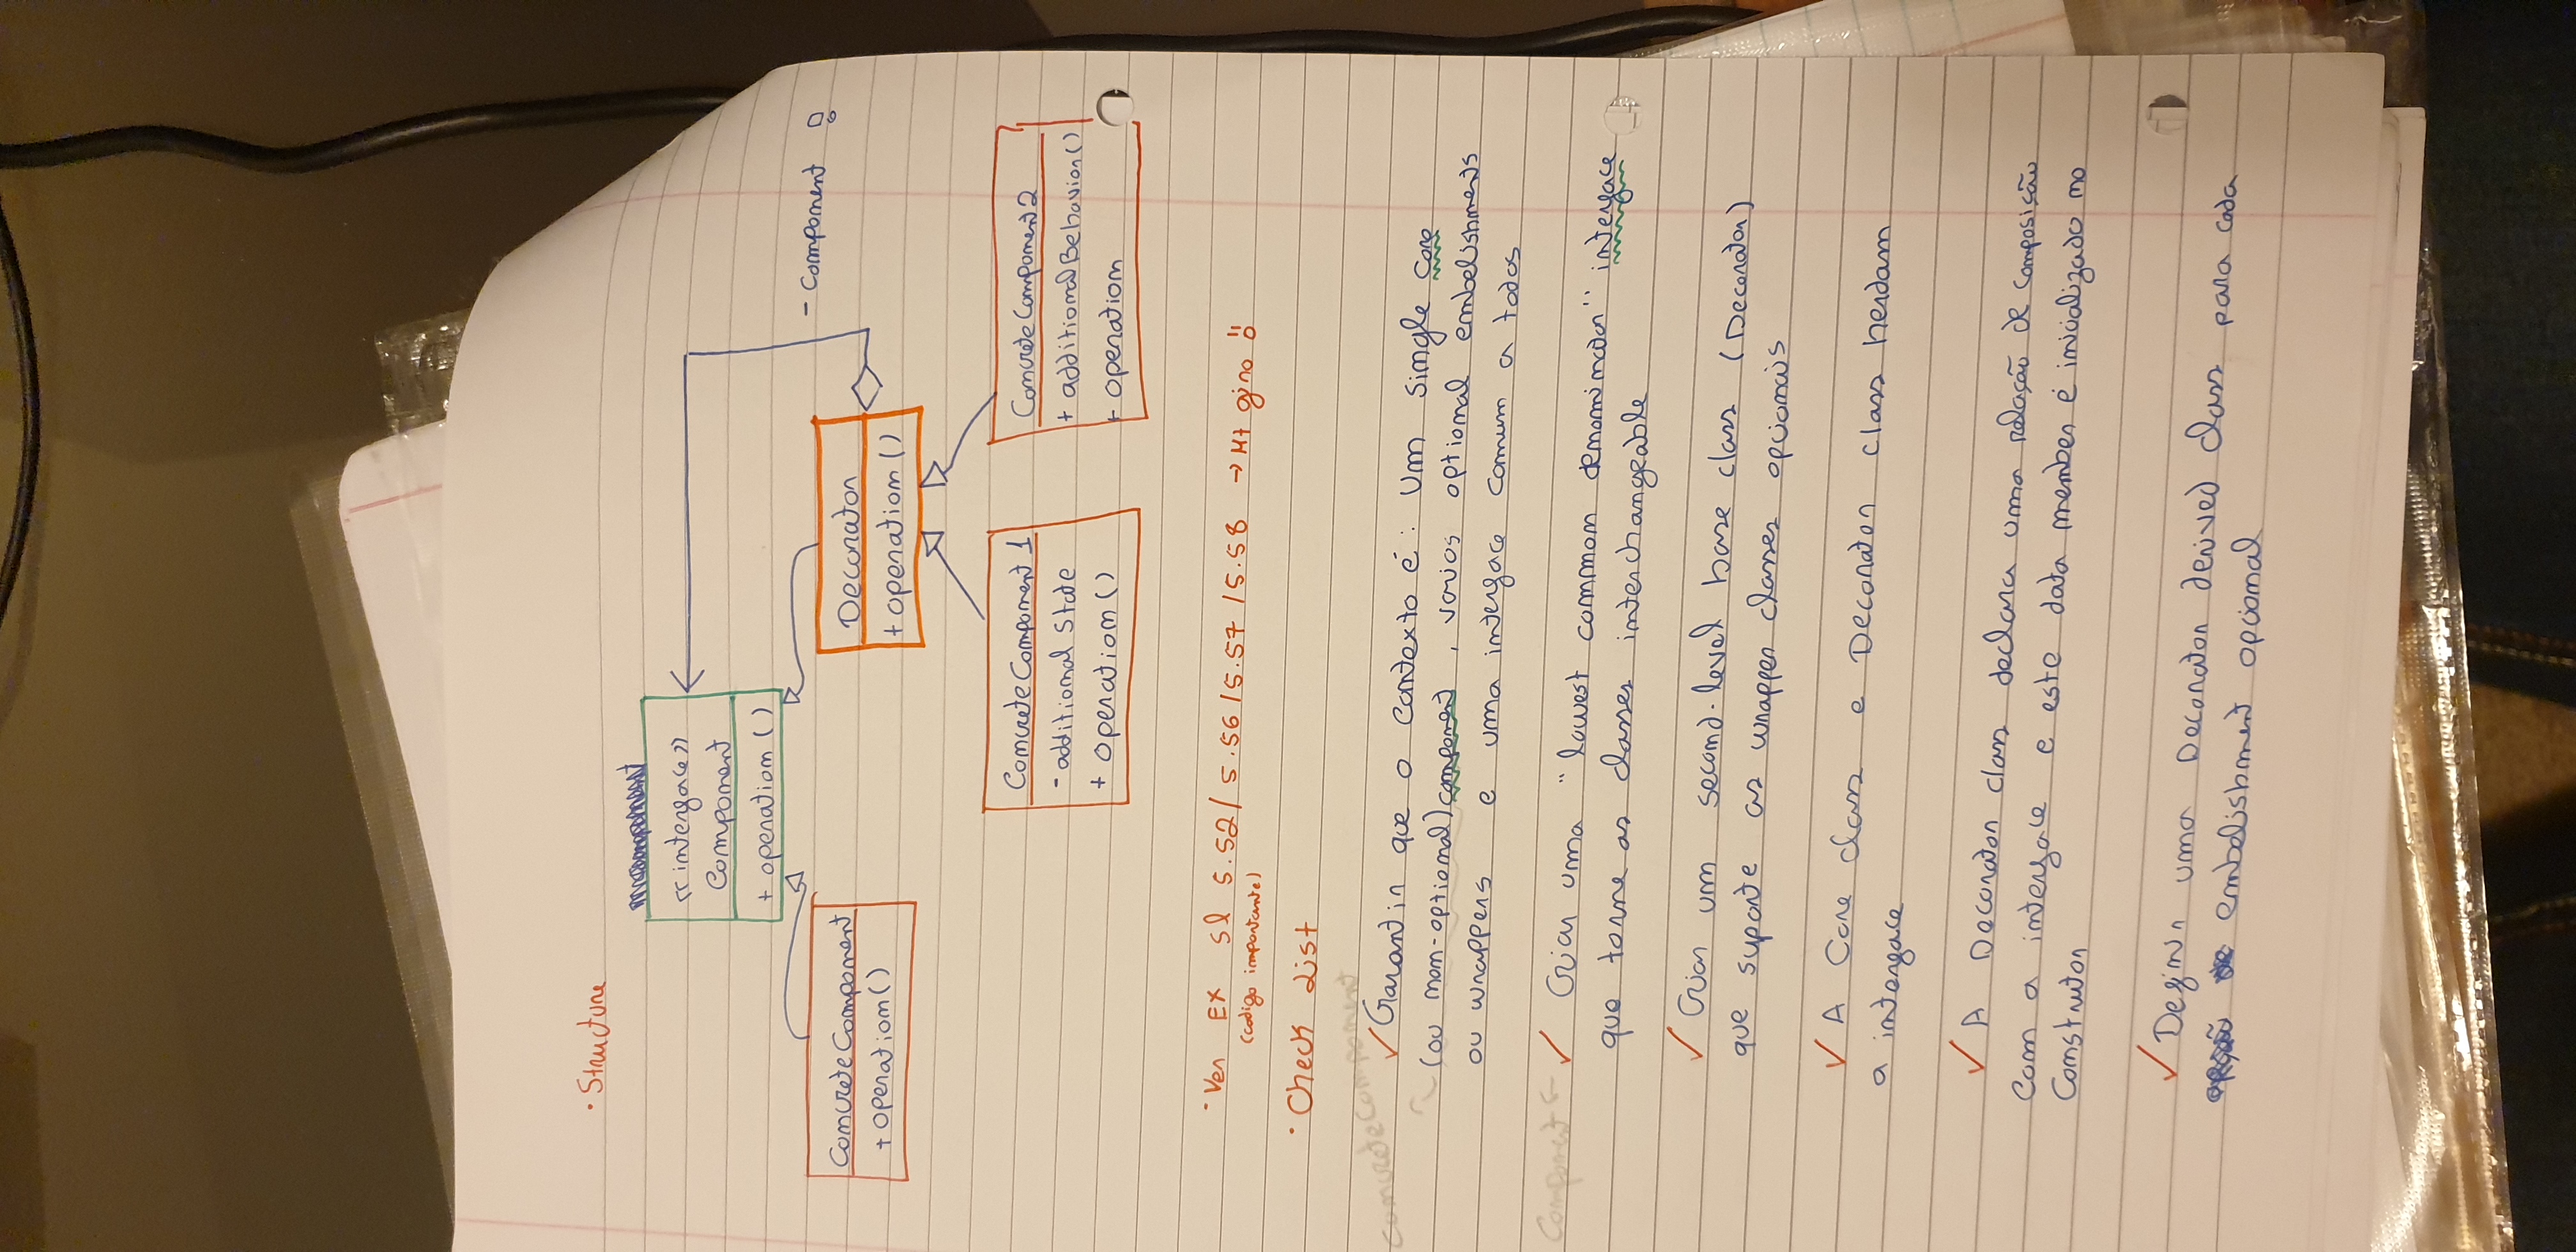 • Structure
<<interface>>
Component
+ operation ()
- Component
ConcreteComponent
+ operation()
Decorator
+ operation ()
ConcreteComponent 1
- additional State
+ operation ()
ConcreteComponent 2
+ additionalBehavior()
+ operation
• Ver EX sl 5.52 / 5.56 / 5.57 / 5.58 → Mt giro !!
(codigo importante)
• Check List
ConcreteComponent
✓ Garantir que o contexto é: um single core
(ou non-optional) component, varios optional embelishments
ou wrappers e uma interface comum a todos
Component ←
✓ Criar uma "lowest common denominator" interface
que torne as classes interchangeable
✓ Criar um second-level base class (Decorator)
que suporte as wrapper classes opcionais
✓ A Core class e Decorator class herdam
a interface
✓ A Decorator class declara uma relação de composição
com a interface e este data member é inicializado no
construtor
✓ Definir uma Decorator derived class para cada
embelishment opcional